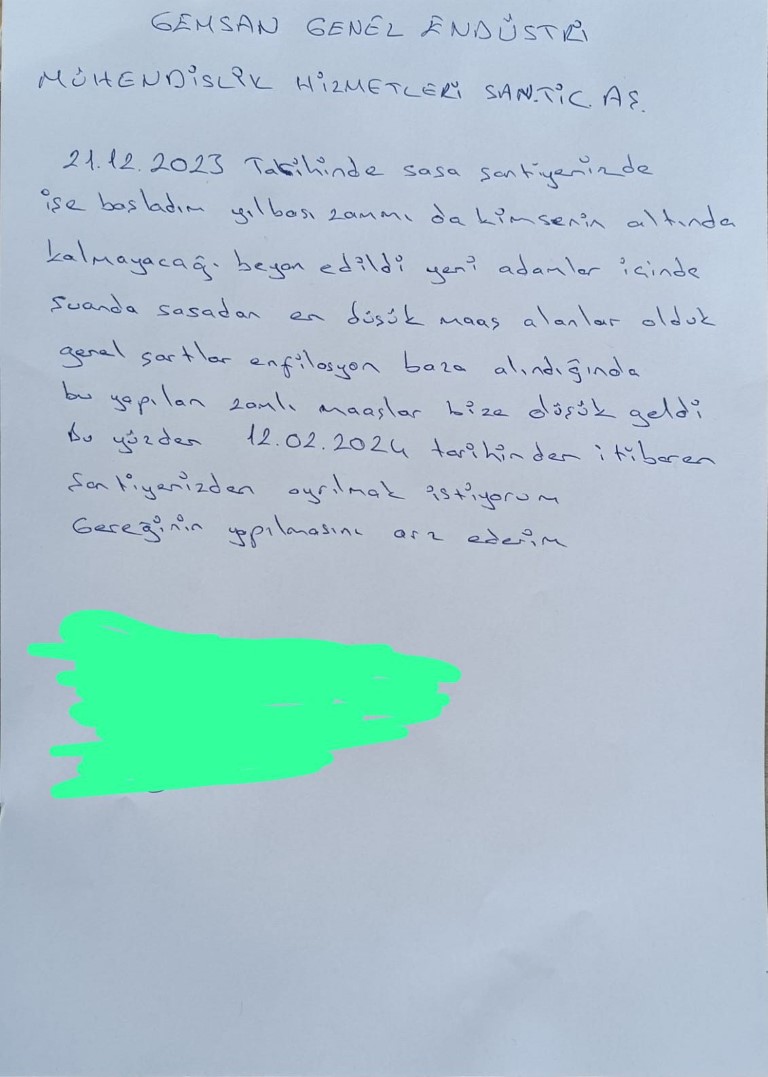 GEMSAN GENEL ENDÜSTRİ
MÜHENDİSLİK HİZMETLERİ SAN.TİC. AŞ.
21.12.2023 Tarihinde sasa şantiyenizde
işe başladım yılbaşı zammı da kimsenin altında
kalmayacağı beyan edildi yeni adamlar içinde
Şuanda sasadan en düşük maaş alanlar olduk
genel şartlar enfilasyon baza alındığında
bu yapılan zamlı maaşlar bize düşük geldi
Bu yüzden 12.02.2024 tarihinden itibaren
Şantiyenizden ayrılmak istiyorum
Gereğinin yapılmasını arz ederim